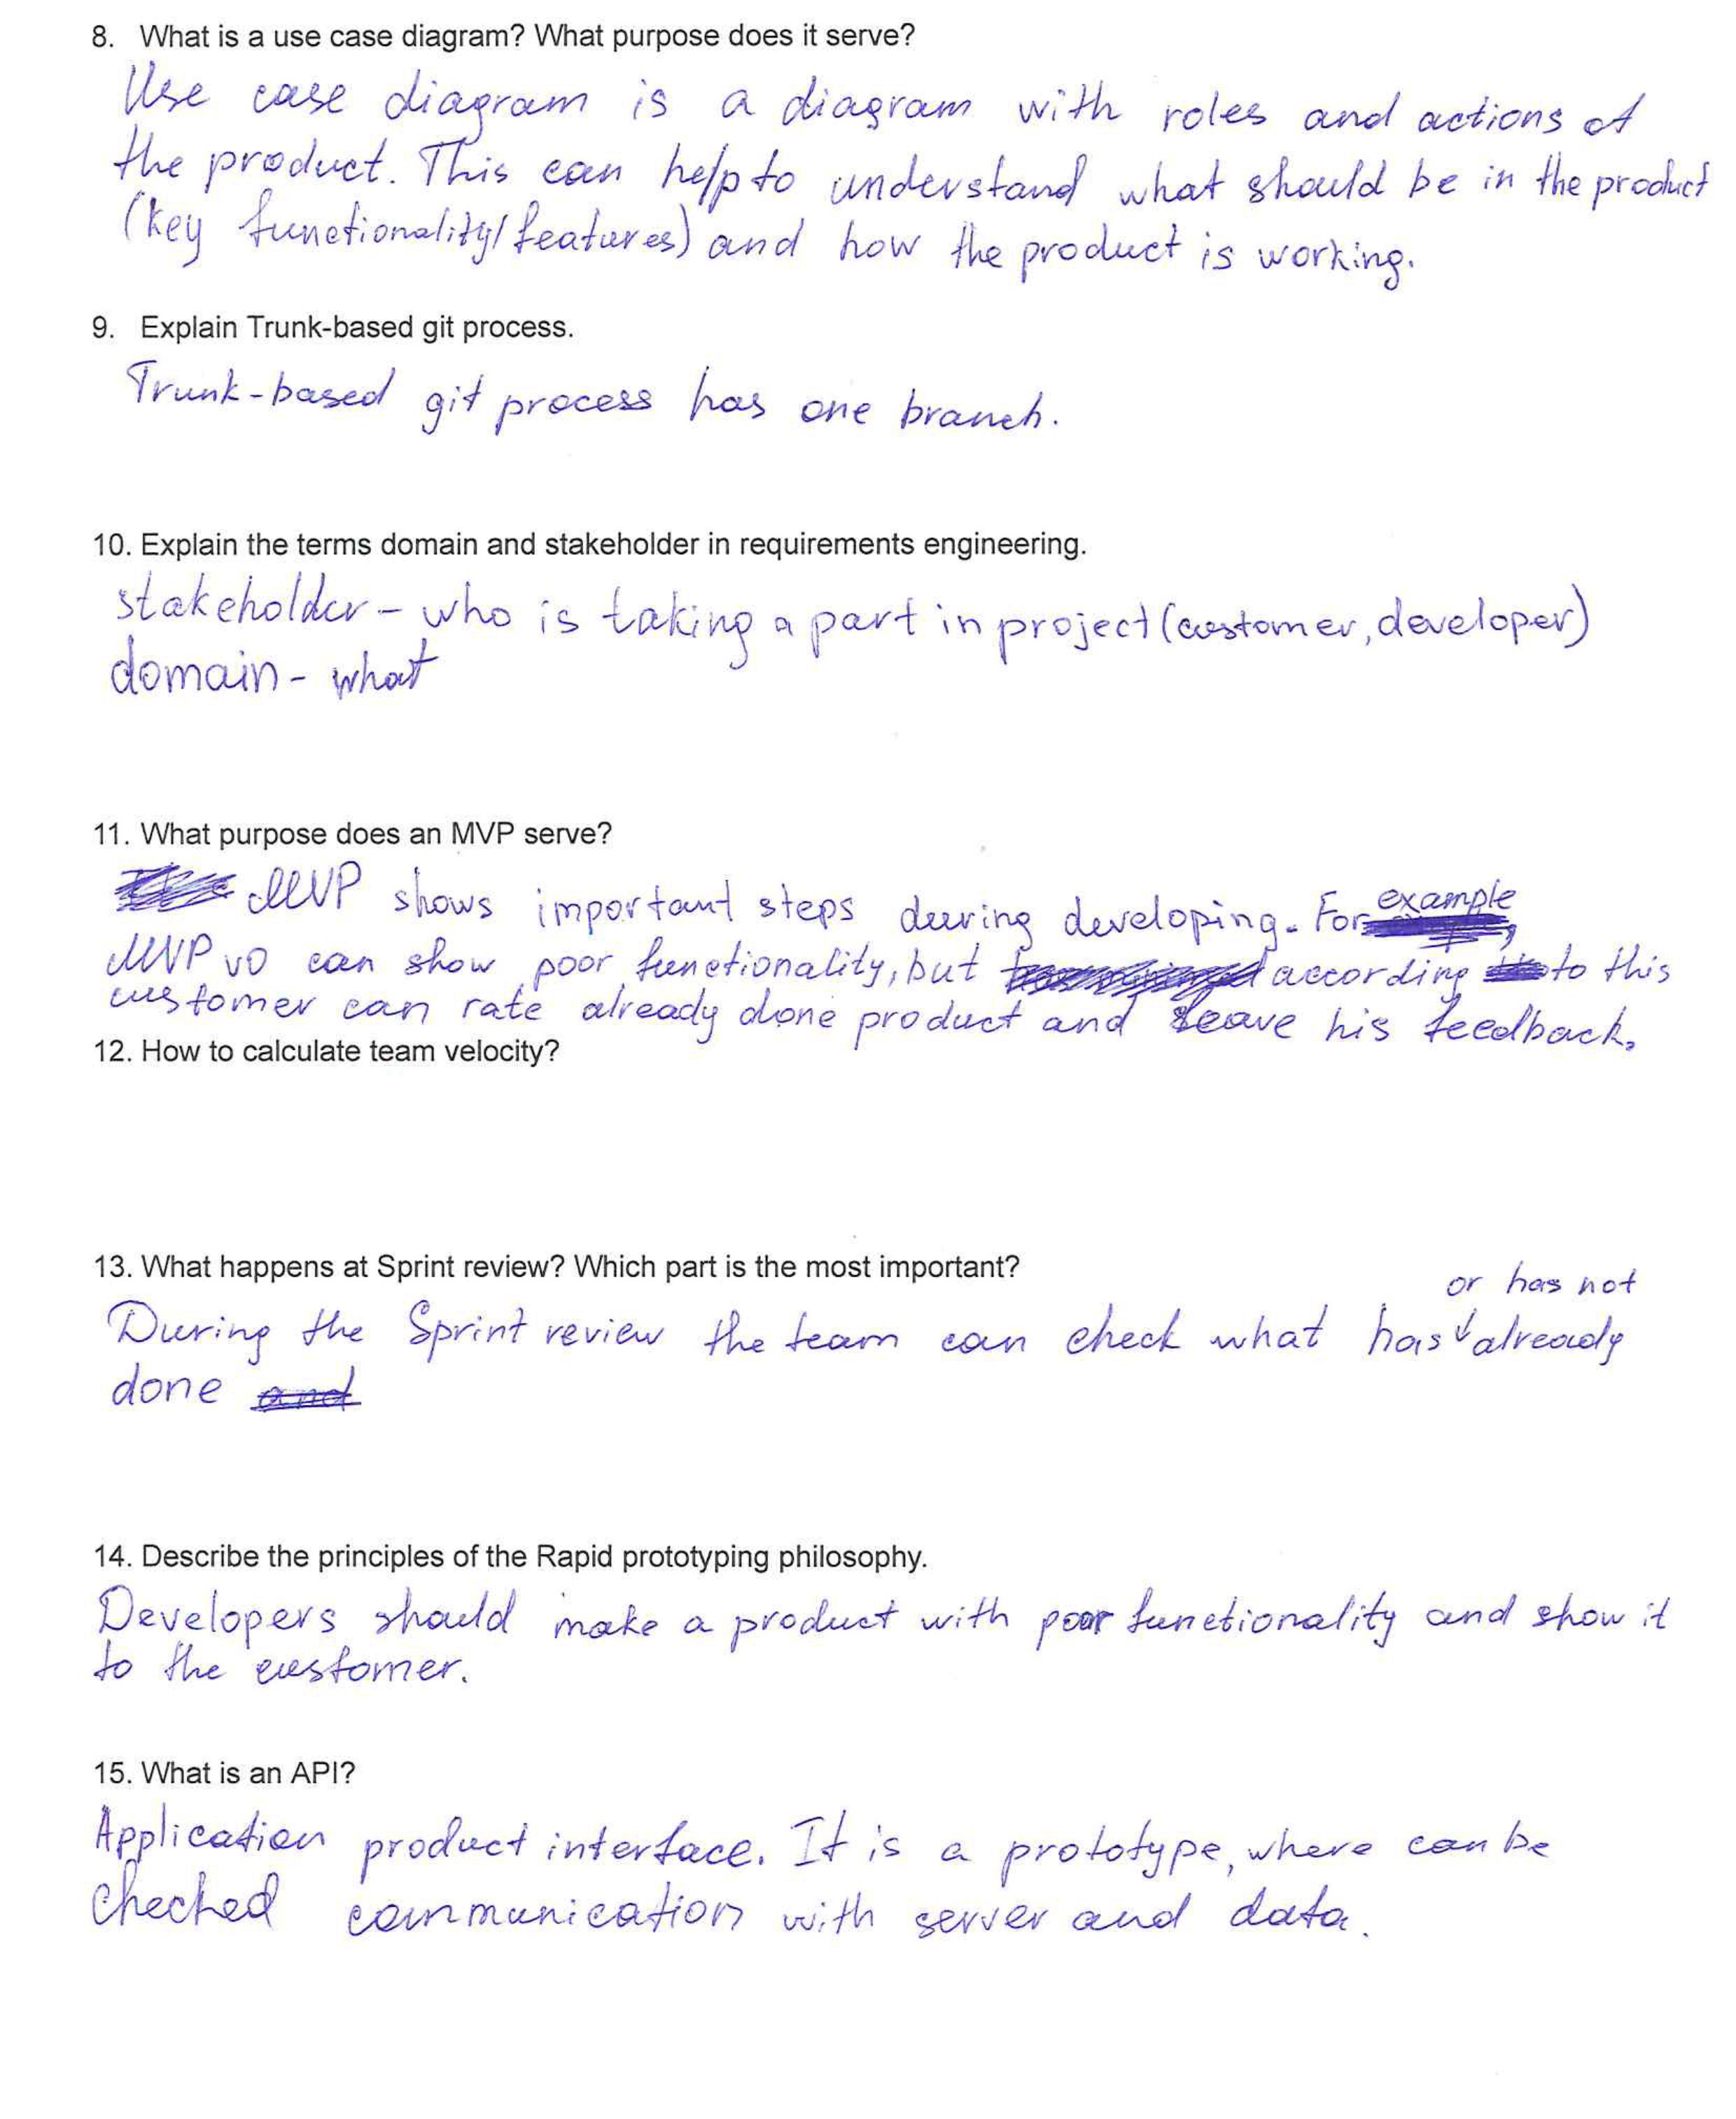 8. What is a use case diagram? What purpose does it serve?
Use case diagram is a diagram with roles and actions of
the product. This can help to understand what should be in the product
(key functionality/features) and how the product is working.
9. Explain Trunk-based git process.
Trunk-based git process has one branch.
10. Explain the terms domain and stakeholder in requirements engineering.
stakeholder - who is taking a part in project (customer, developer)
domain - what
11. What purpose does an MVP serve?
MVP shows important steps during developing. For example,
MVP v0 can show poor functionality, but according to this
customer can rate already done product and leave his feedback.
12. How to calculate team velocity?
13. What happens at Sprint review? Which part is the most important?
or has not
During the Sprint review the team can check what has already
done and
14. Describe the principles of the Rapid prototyping philosophy.
Developers should make a product with poor functionality and show it
to the customer.
15. What is an API?
Application product interface. It is a prototype, where can be
checked communication with server and data.